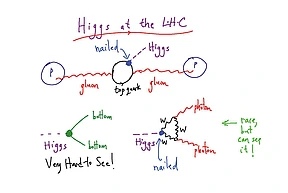 Higgs at the LHC
nailed
Higgs
P
P
gluon
top quark
gluon
bottom
Higgs
bottom
Very Hard to See!
photon
W
W
W
Higgs
photon
nailed
rare,
but
can see
it!